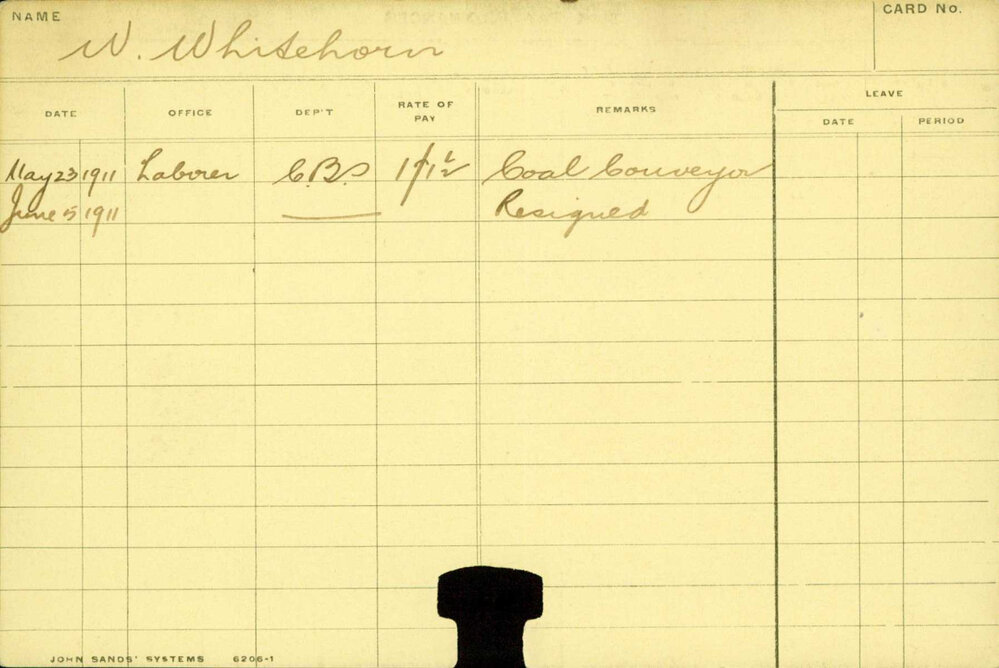 NAME
W. Whitehorn
CARD No.
DATE OFFICE DEP'T RATE OF PAY REMARKS LEAVE
DATE PERIOD
May 23 1911 Laborer C.B.S Coal Conveyor
June 5 1911 Resigned
JOHN SANDS' SYSTEMS 6206-1